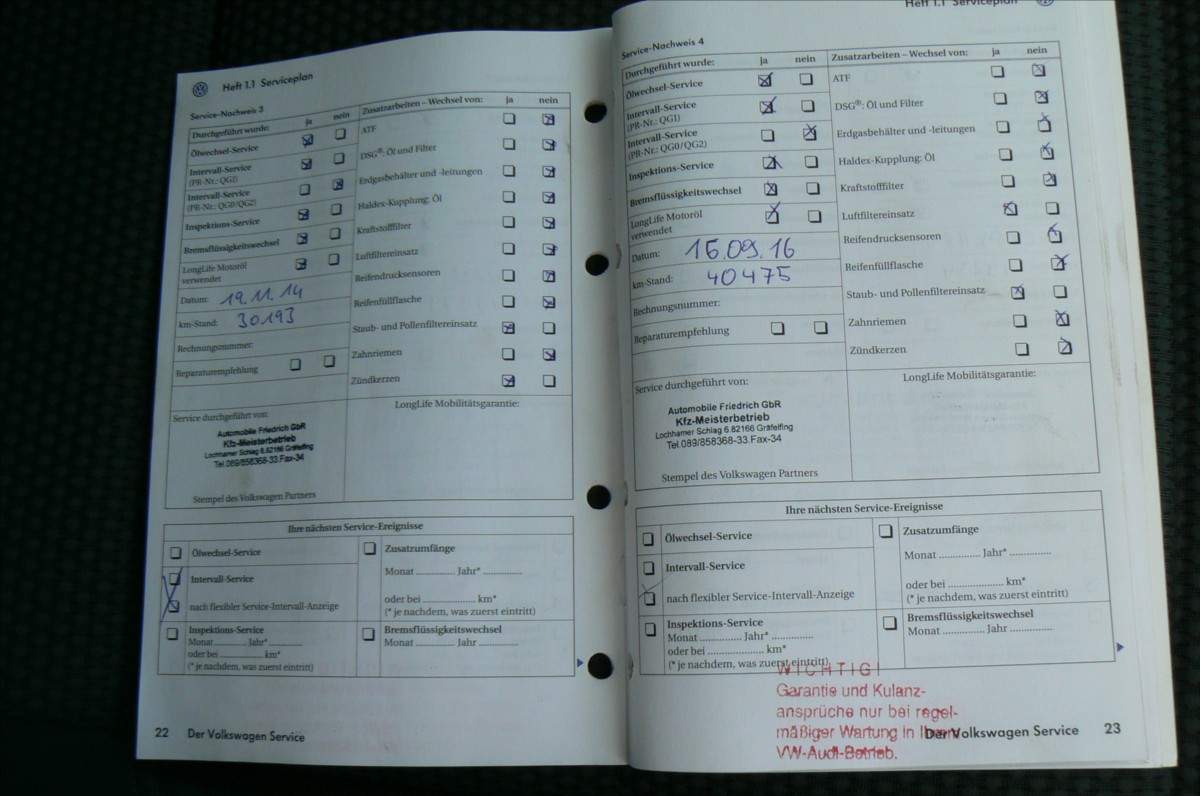 Heft 1.1 Serviceplan
Service-Nachweis 3
Durchgeführt wurde: ja nein
Ölwechsel-Service
Intervall-Service
(PR-Nr.: QG1)
Intervall-Service
(PR-Nr.: QG0/QG2)
Inspektions-Service
Bremsflüssigkeitswechsel
LongLife Motoröl
verwendet
Datum: 19.11.14
km-Stand: 30193
Rechnungsnummer:
Reparaturempfehlung
Zusatzarbeiten – Wechsel von: ja nein
ATF
DSG®: Öl und Filter
Erdgasbehälter und -leitungen
Haldex-Kupplung: Öl
Kraftstofffilter
Luftfiltereinsatz
Reifendrucksensoren
Reifenfüllflasche
Staub- und Pollenfiltereinsatz
Zahnriemen
Zündkerzen
Service durchgeführt von:
Automobile Friedrich GbR
Kfz-Meisterbetrieb
Lochhamer Schlag 6.82166 Gräfelfing
Tel.089/858368-33.Fax-34
Stempel des Volkswagen Partners
LongLife Mobilitätsgarantie:
Ihre nächsten Service-Ereignisse
Ölwechsel-Service
Intervall-Service
nach flexibler Service-Intervall-Anzeige
Inspektions-Service
Monat .............. Jahr* ..............
oder bei .................... km*
(* je nachdem, was zuerst eintritt)
Zusatzumfänge
Monat .............. Jahr* ..............
oder bei .................... km*
(* je nachdem, was zuerst eintritt)
Bremsflüssigkeitswechsel
Monat .............. Jahr ..............
22 Der Volkswagen Service
Heft 1.1 Serviceplan
Service-Nachweis 4
Durchgeführt wurde: ja nein
Ölwechsel-Service
Intervall-Service
(PR-Nr.: QG1)
Intervall-Service
(PR-Nr.: QG0/QG2)
Inspektions-Service
Bremsflüssigkeitswechsel
LongLife Motoröl
verwendet
Datum: 15.09.16
km-Stand: 40475
Rechnungsnummer:
Reparaturempfehlung
Zusatzarbeiten – Wechsel von: ja nein
ATF
DSG®: Öl und Filter
Erdgasbehälter und -leitungen
Haldex-Kupplung: Öl
Kraftstofffilter
Luftfiltereinsatz
Reifendrucksensoren
Reifenfüllflasche
Staub- und Pollenfiltereinsatz
Zahnriemen
Zündkerzen
Service durchgeführt von:
Automobile Friedrich GbR
Kfz-Meisterbetrieb
Lochhamer Schlag 6.82166 Gräfelfing
Tel.089/858368-33.Fax-34
Stempel des Volkswagen Partners
LongLife Mobilitätsgarantie:
Ihre nächsten Service-Ereignisse
Ölwechsel-Service
Intervall-Service
nach flexibler Service-Intervall-Anzeige
Inspektions-Service
Monat .............. Jahr* ..............
oder bei .................... km*
(* je nachdem, was zuerst eintritt)
Zusatzumfänge
Monat .............. Jahr* ..............
oder bei .................... km*
(* je nachdem, was zuerst eintritt)
Bremsflüssigkeitswechsel
Monat .............. Jahr ..............
WICHTIG!
Garantie und Kulanz-
ansprüche nur bei regel-
mäßiger Wartung in Ihrem
VW-Audi-Betrieb.
Der Volkswagen Service 23